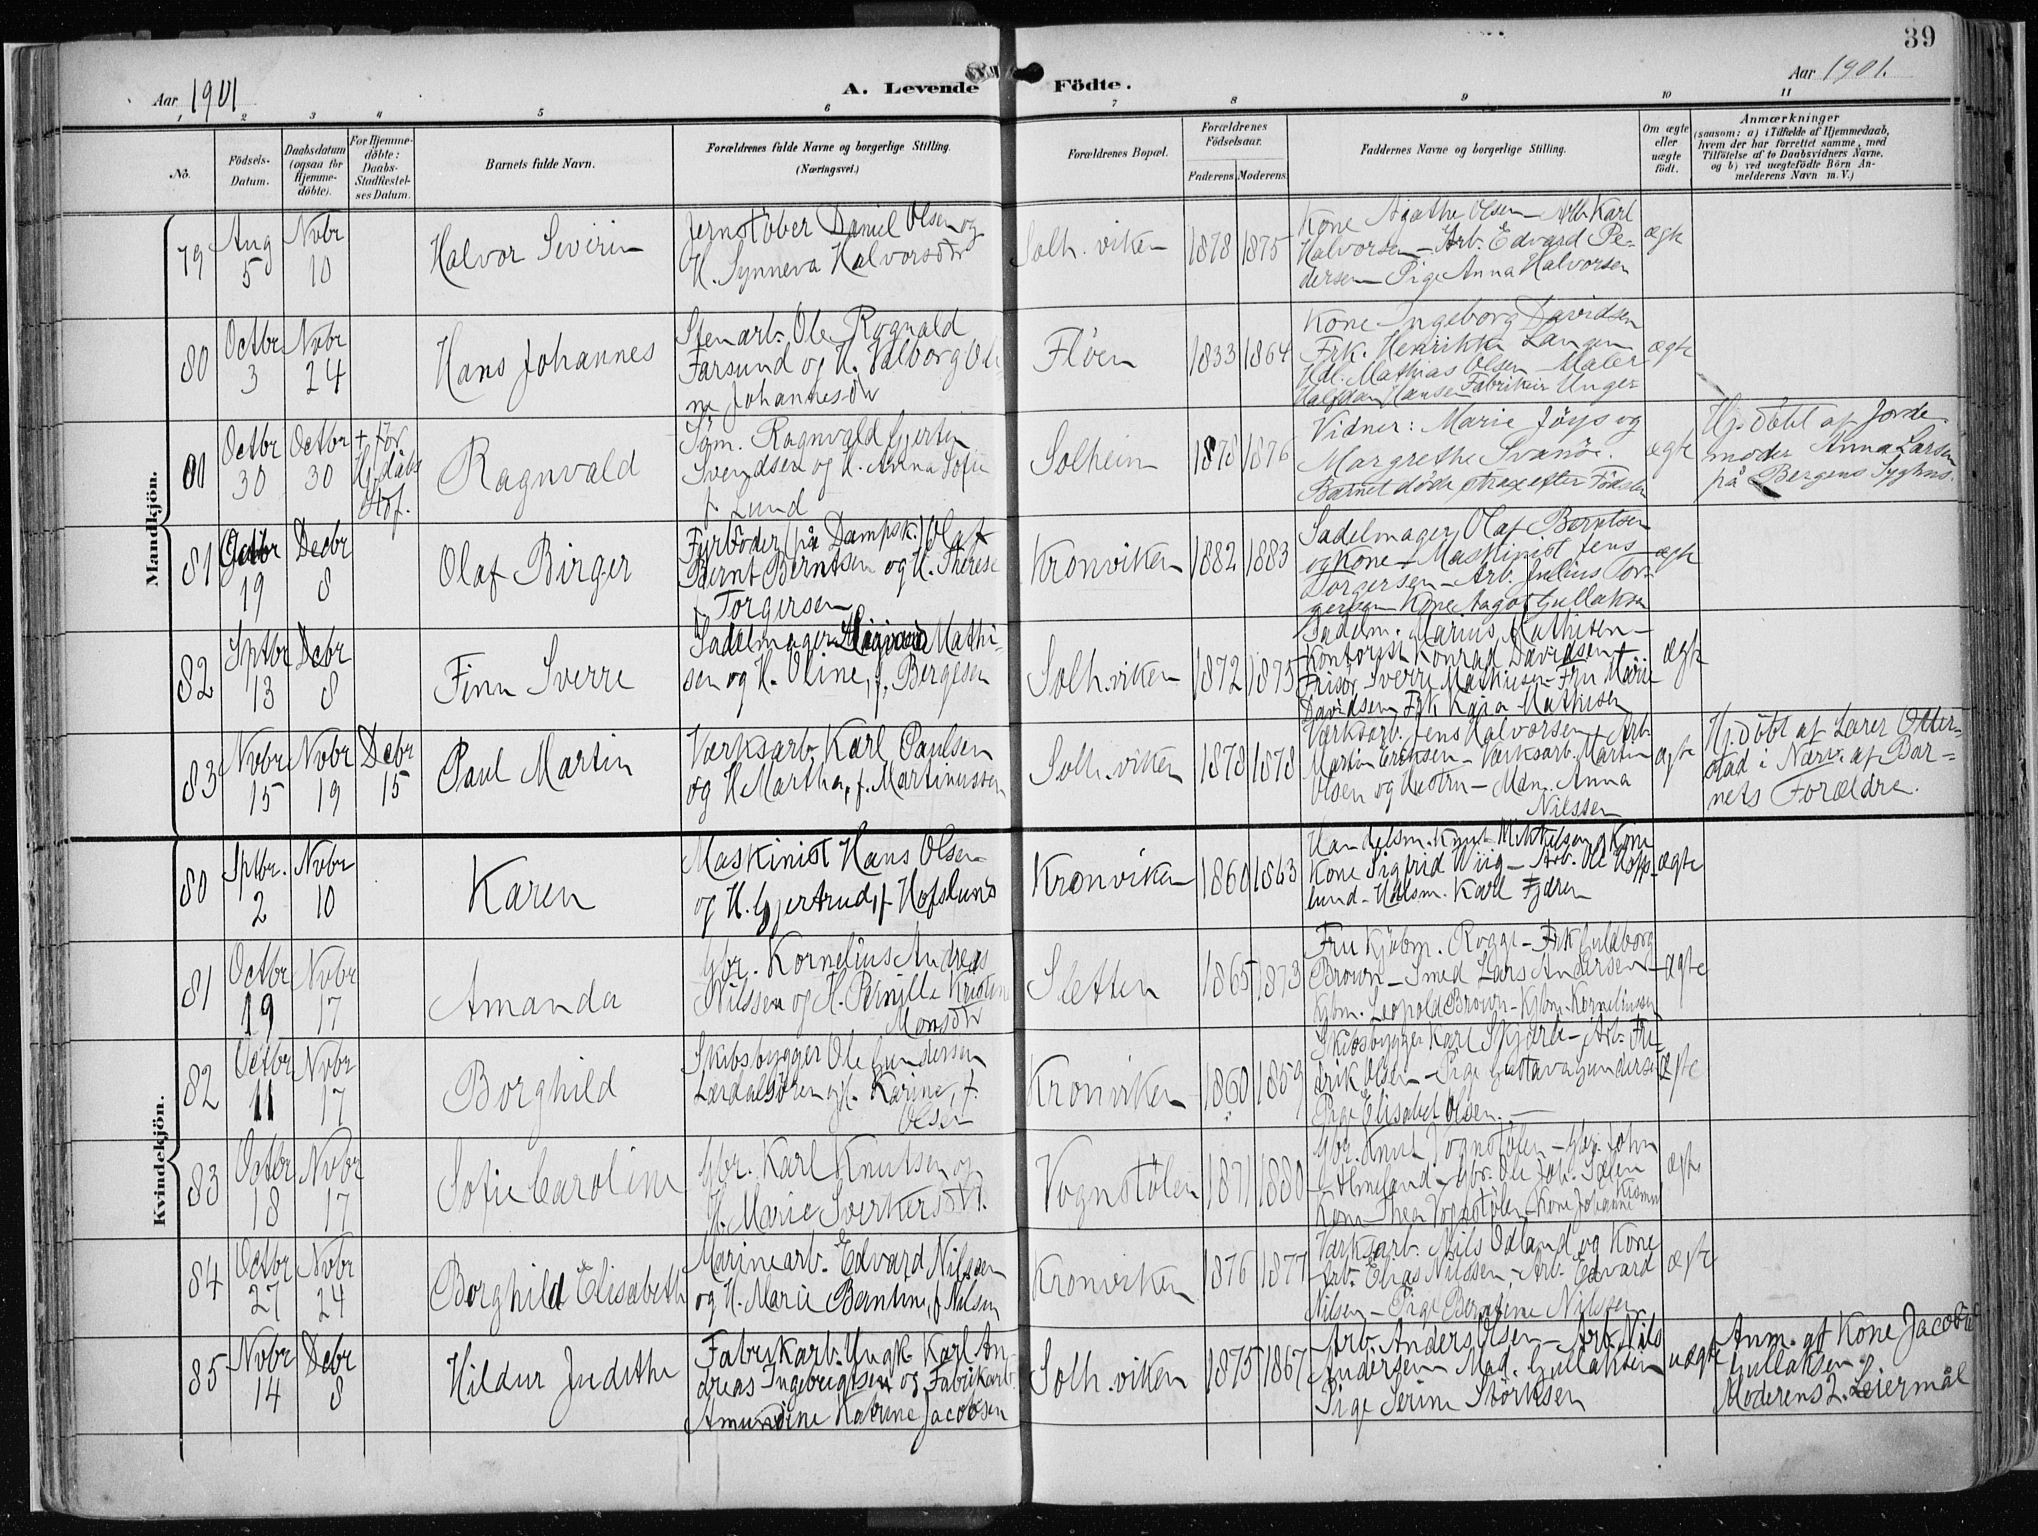 39
Aar 1901
A. Levende Födte.
Aar 1901.
1 2 3 4 5 6 7 8 9 10 11
No.
Födsels-
Datum.
Daabsdatum
(ogsaa for
Hjemme-
döbte).
For Hjemme-
döbte:
Daabs-
Stadfæstel-
ses Datum.
Barnets fulde Navn.
Forældrenes fulde Navne og borgerlige Stilling.
(Næringsvei.)
Forældrenes Bopæl.
Forældrenes
Födselsaar.
Faderens. Moderens.
Faddernes Navne og borgerlige Stilling.
Om ægte
eller
uægte
födt.
Anmærkninger
(saasom: a) i Tilfælde af Hjemmedaab,
hvem der har forrettet samme, med
Tilföielse af to Daabsvidners Navne,
og b) ved uægtefödte Börn An-
melderens Navn m. V.)
Mandkjön.
79
Aug
5
Nvbr
10
Halvor Severin
Jernstöber Daniel Olsen og
H. Synneva Halvorsdtr
Solh. viken
1878
1875
Kone Agathe Olsen – Arb. Karl
Halvorsen – Arb. Edvard Pe-
dersen – Pige Anna Halvorsen
ægte
80
Octbr
3
Nvbr
24
Hans Johannes
Stenarb. Ole Rognald
Farsund og H. Valborg Oli
ne Johannesdtr
Flöen
1833
1864
Kone Ingeborg Davidsen
Frk. Henrikke Langen
Hdl. Mathias Olsen – Maler
Halfdan Hansen Fabrikeier Unger
ægte
Octbr
30
Octbr
30
+ för
Hj. dåbs
Stdf.
Ragnvald
Söm. Ragnvald Gjertin
Svendsen og H. Anna Sofie
f. Lund
Solheim
1878
1876
Vidner: Marie Jöys og
Margrethe Svanöe.
Barnet döde strax efter Födslen
ægte
Hj. döbt af Jorde-
moder Anna Larsen
på Bergens Sygehus.
81
Octbr
19
Decbr
8
Olaf Birger
Fyrböder på Dampsk. Olaf
Bernt Berntsen og H. Therese
f. Torgersen
Kronviken
1882
1883
Sadelmager Olaf Berntsen
og Kone – Maskinist Jens
Torgersen – Arb. Julius Tor-
gersen Kone Aagot Gullaksen
ægte
82
Sptbr
13
Dcbr
8
Finn Sverre
Sadelmager Mathi-
sen og H. Oline, f. Bergesen
Solh. viken
1872
1875
Sadelm. Marius Mathisen –
Kontorist Konrad Davidsen –
Frisör Sverre Mathiesen – Fru Marie
Davidsen Frk Kaja Mathisen
ægte
83
Nvbr
15
Nvbr
19
Dcbr
15
Paul Martin
Værksarb. Karl Paulsen
og H Martha, f. Martinussen
Solh. viken
1878
1878
Værksarb. Jens Halvorsen – Arb.
Martin Eriksen – Værksarb. Martin
Olsen og Hustru – Mdn. Anna
Nilssen
ægte
Hj. döbt af Lærer Otter-
stad i Nærv. af Bar-
nets Forældre.
Kvindekjön.
80
Sptbr.
2
Nvbr
10
Karen
Maskinist Hans Olsen
og H. Gjertrud, f. Hofslund
Kronviken
1860
1863
Handelsm. Knut Mikkelsen, Kone
Kone Sigfrid Wiig – Arb. Ole Hops-
lund – Hdlsm. Karl Fjdren
ægte
81
Octbr
19
Nvbr
17
Amanda
Gbr. Kornelius Andreas
Nilssen og H. Pernille Kristine
Monsdtr
Sletten
1865
1873
Fru Kjöbm. Rogge – Frk Guldborg
Brown – Smed Lars Andersen –
Kjbm. Leopold Brown – Kjbm. Korneliussen
ægte
82
Octbr
11
Nvbr
17
Borghild
Skibsbygger Ole Gundersen
Lærdalsören og H. Karine, f.
Olsen
Kronviken
1860
1859
Skibsbygger Karl Skjerli – Arb. Fre-
drik Olsen – Pige Gustava Gundersen
Pige Elisabet Olsen. –
ægte
83
Octbr
18
Nvbr
17
Sofie Caroline
Gbr. Karl Knutsen og
H. Marie Sverkersdtr.
Vognstölen
1871
1880
Gbr. Knut Vognstölen – Gbr. John
Almeland – Gbr. Ole Joh. Sælen
Kone Thea Vognstölen – Kone Johanne
ægte
84
Octbr
27
Nvbr
24
Borghild Elisabeth
Marinearb. Edvard Nilssen
og H. Marie Bentine, f. Nilsen
Kronviken
1876
1877
Værksarb. Nils Odland og Kone
Arb. Elias Nilssen, Arb. Edvard
Nilsen – Pige Berntine Nilssen
ægte
85
Nvbr
14
Dcbr
8
Hildur Judithe
Fabrikarb. Ungk. Karl An-
dreas Ingebrigtsen og Fabrikarb.
Amundine Katrine Jacobsen
Solh. viken
1875
1867
Arb. Anders Olsen – Arb. Nils
Andersen Mad. Gullaksen
Pige Serine Störksen
uægte
Anm. af Kone Jacobie
Gullaksen.
Moderens 2. Leiermål